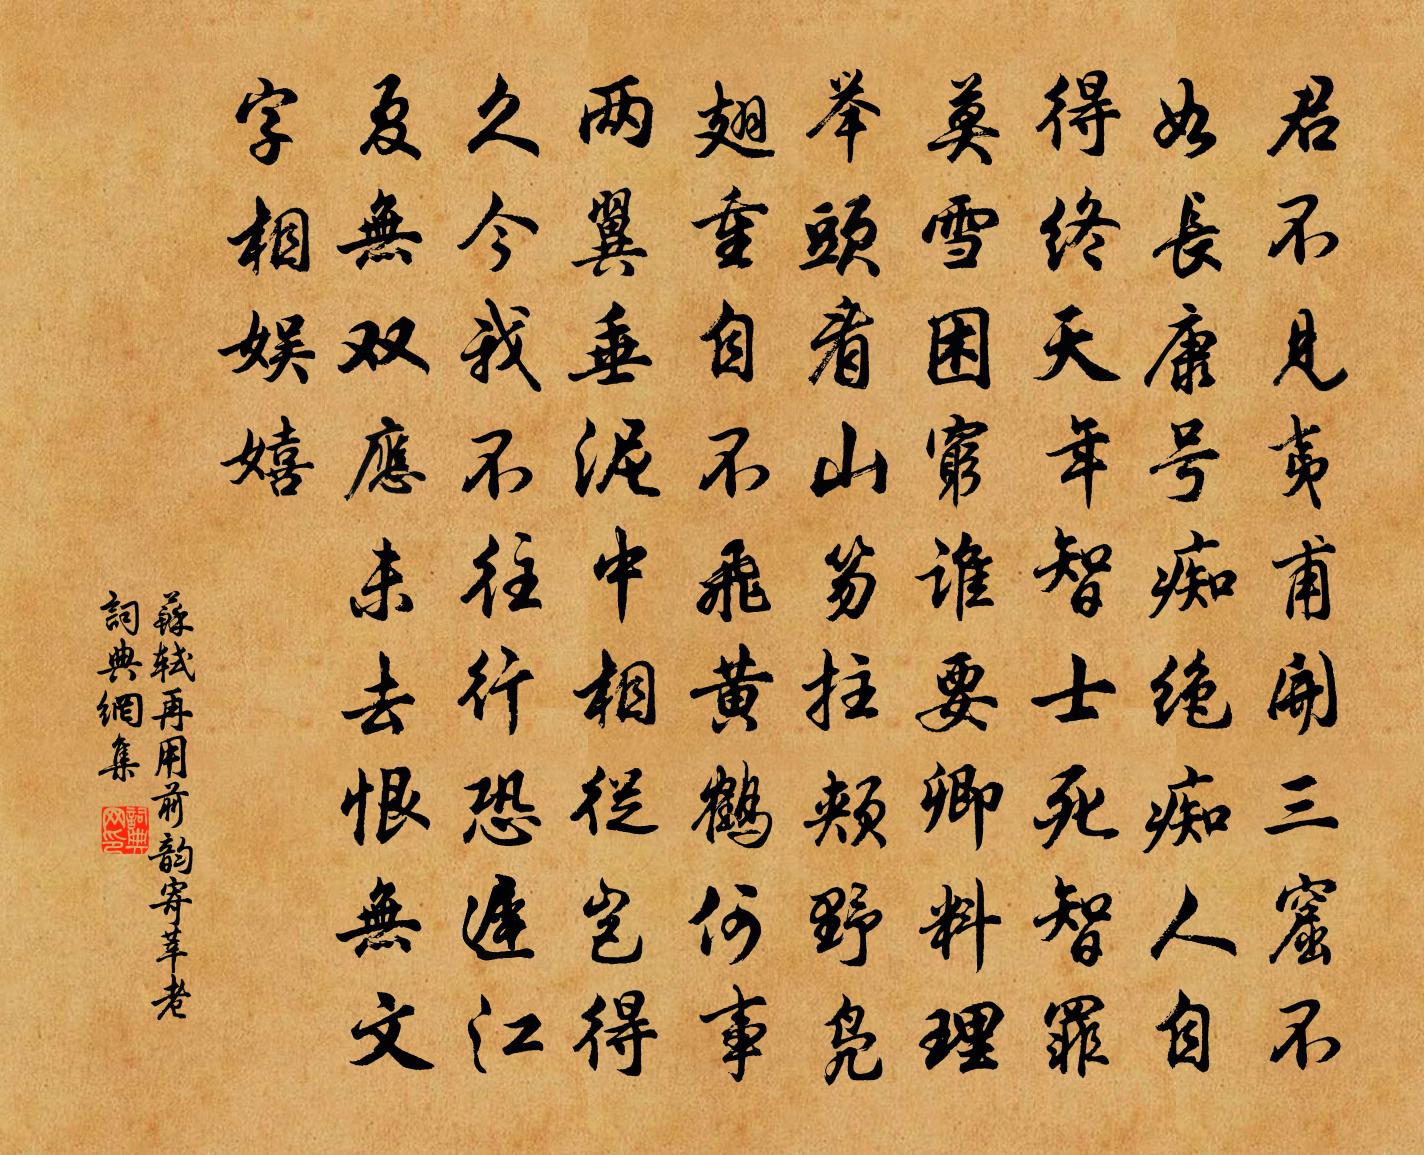 君不見夷甫開三窟不
如長康号痴絶痴人自
得終天年智士死智罪
莫雪困窮誰要卿料理
举頭看山笏拄頰野凫
翅重自不飛黄鶴何事
两翼垂泥中相從岂得
久今我不往行恐遅江
夏無双應未去恨無文
字相娱嬉
蘇軾再用前韵寄莘老
詞典網集
詞典
网印